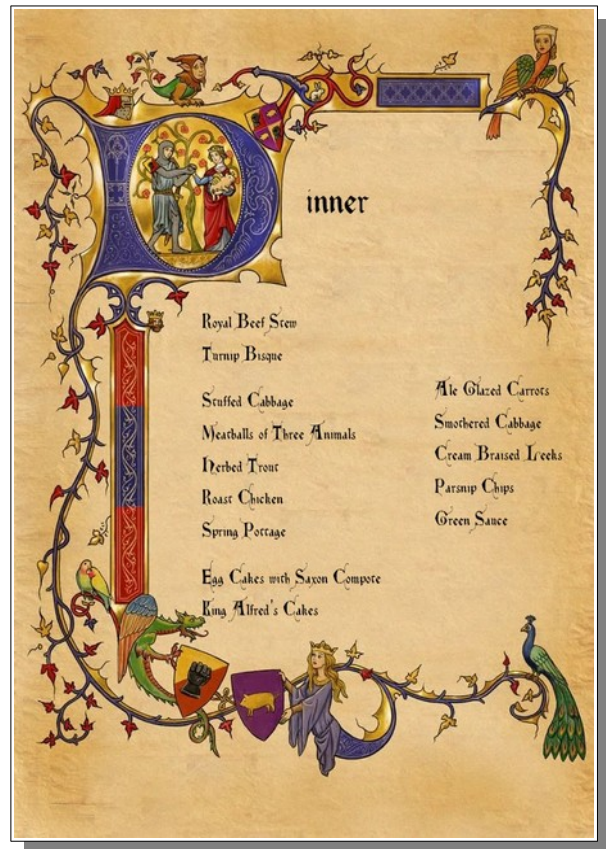 Dinner
Royal Beef Stew
Turnip Bisque
Stuffed Cabbage
Meatballs of Three Animals
Herbed Trout
Roast Chicken
Spring Pottage
Egg Cakes with Saxon Compote
King Alfred's Cakes
Ale Glazed Carrots
Smothered Cabbage
Cream Braised Leeks
Parsnip Chips
Green Sauce